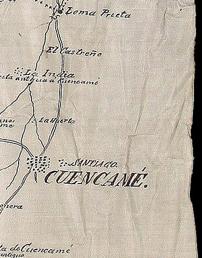 Loma Prieta
El Castreño
La India
antigua á Cuencamé
La Huerto
SANTIAGO.
CUENCAMÉ.
de Cuencamé